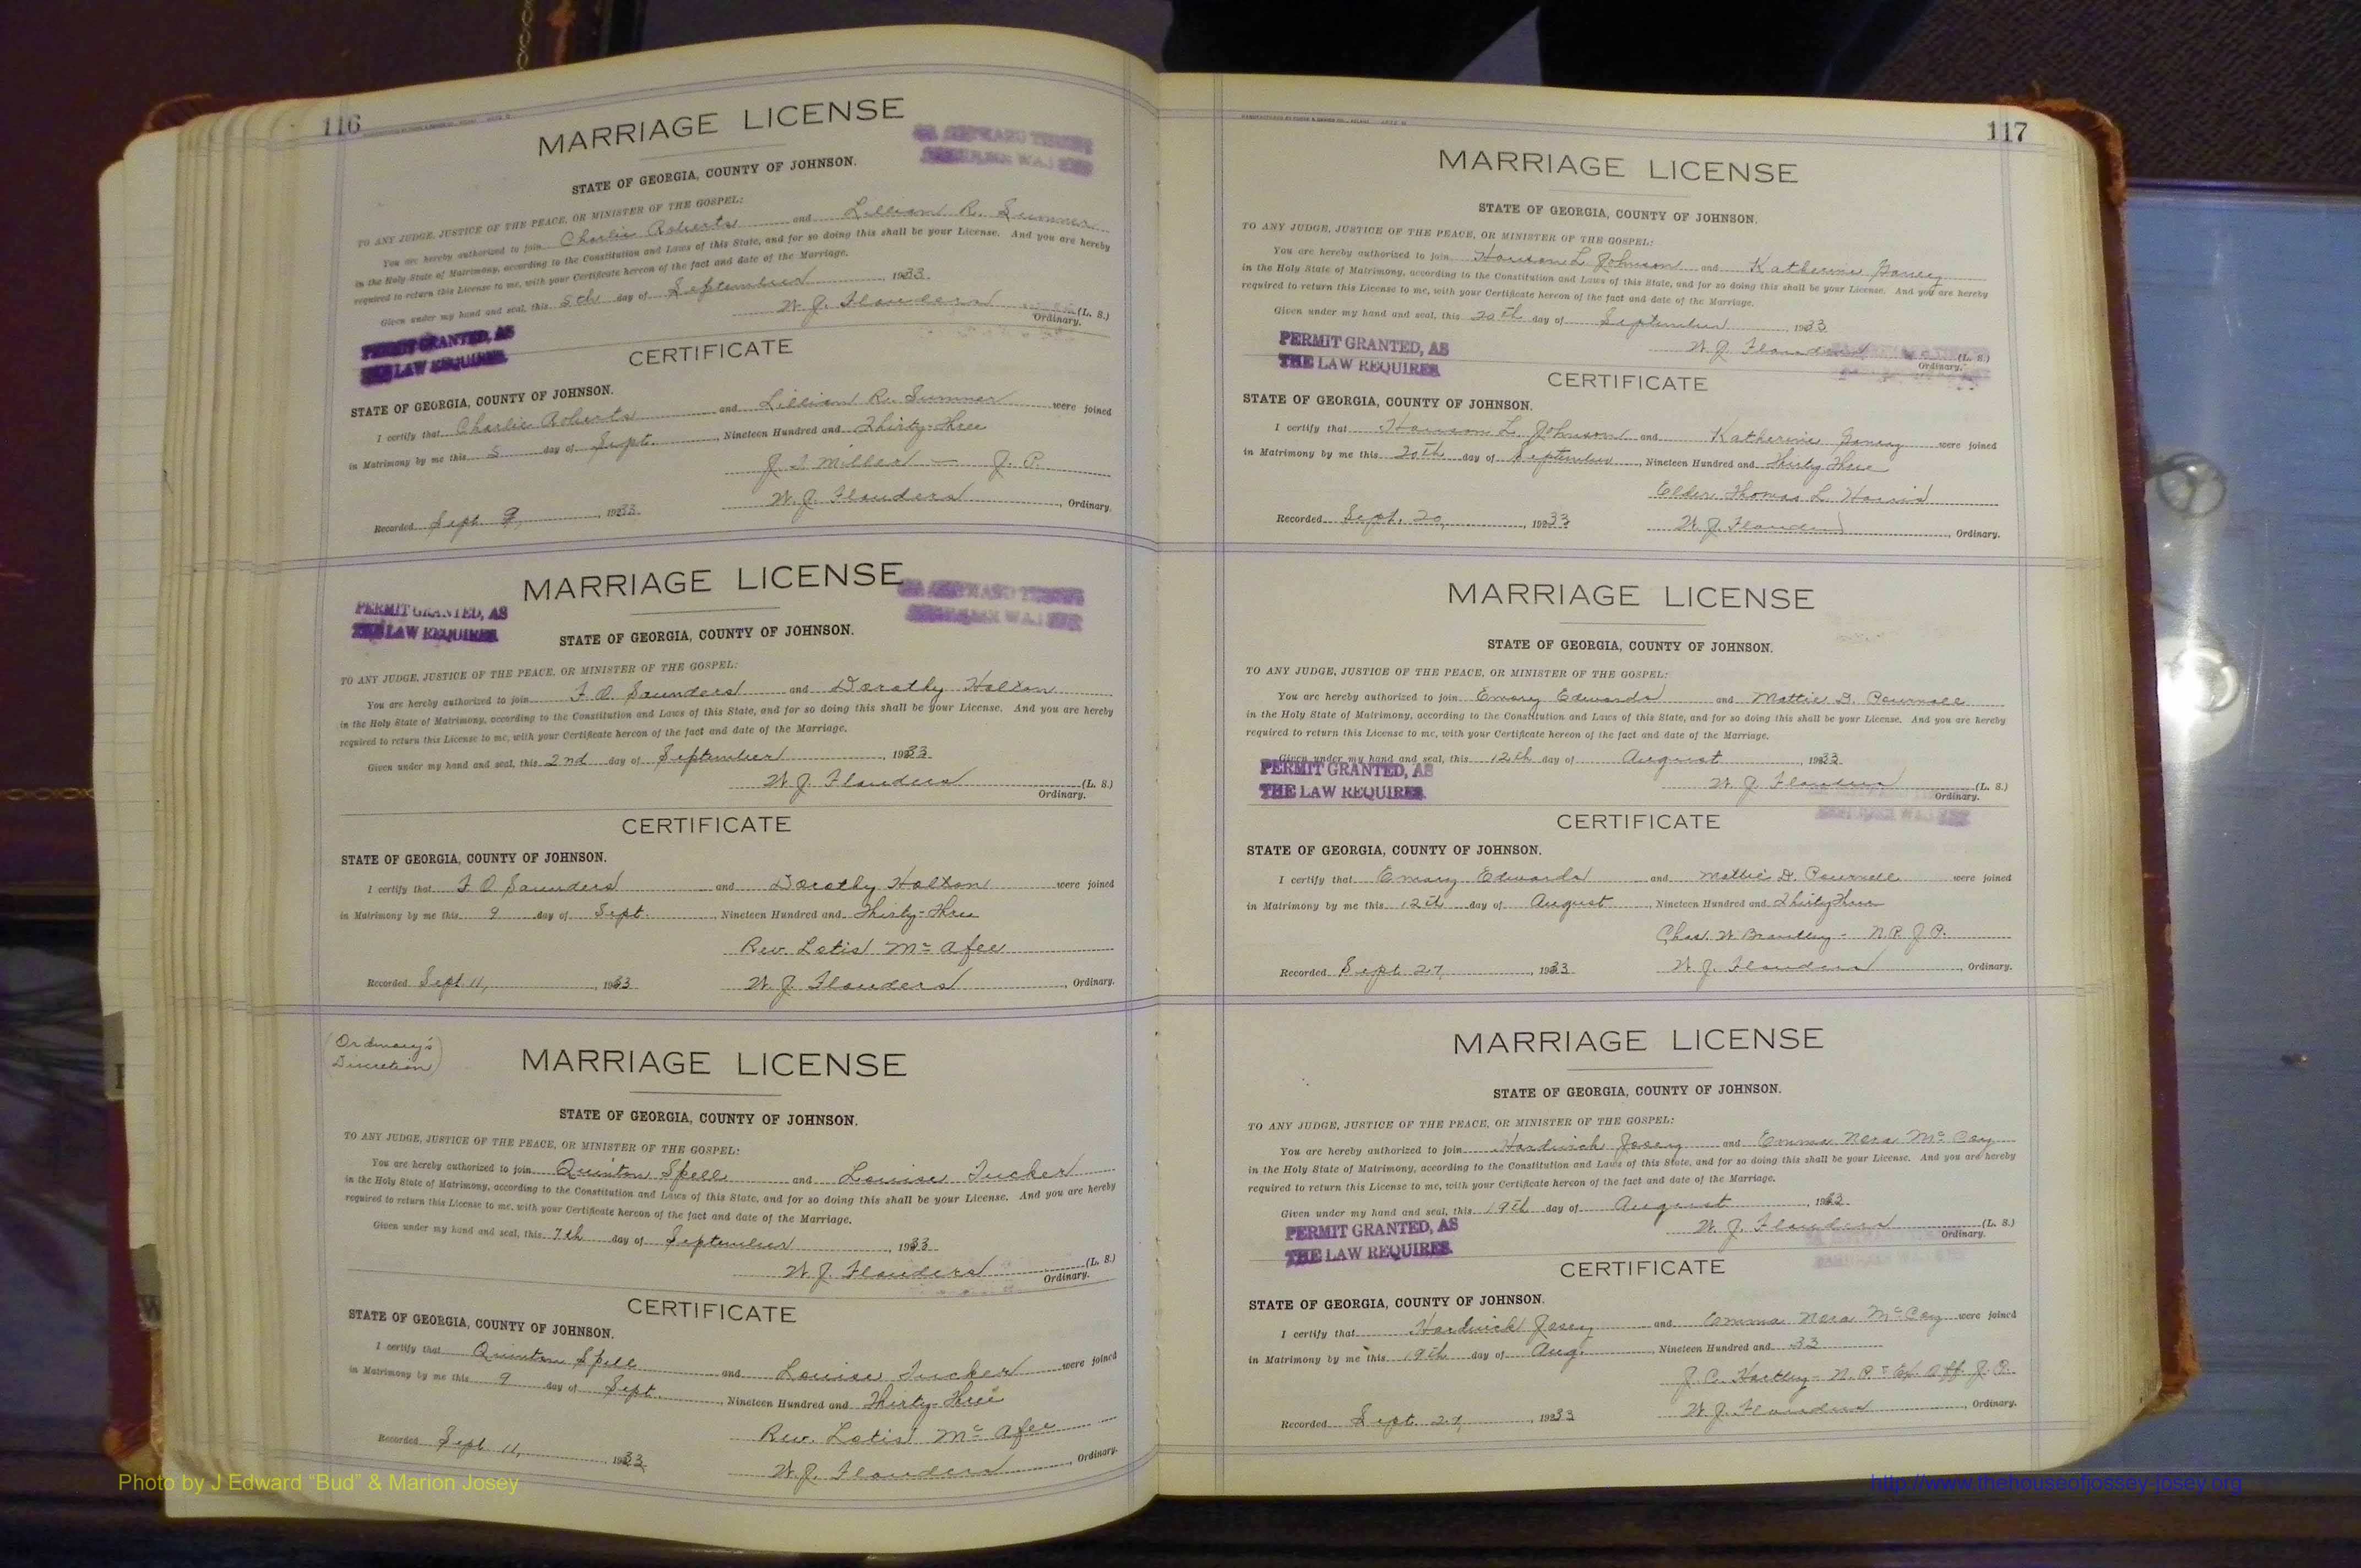 116
MARRIAGE LICENSE
STATE OF GEORGIA, COUNTY OF JOHNSON.
TO ANY JUDGE, JUSTICE OF THE PEACE, OR MINISTER OF THE GOSPEL:
You are hereby authorized to join Charlie Roberts and Lillian R. Sumner
in the Holy State of Matrimony, according to the Constitution and Laws of this State, and for so doing this shall be your License. And you are hereby
required to return this License to me, with your Certificate hereon of the fact and date of the Marriage.
Given under my hand and seal, this 5th day of September, 1933.
W. J. Flanders (L. S.)
Ordinary.
PERMIT GRANTED, AS
THE LAW REQUIRES.
CERTIFICATE
STATE OF GEORGIA, COUNTY OF JOHNSON.
I certify that Charlie Roberts and Lillian R. Sumner were joined
in Matrimony by me this 5 day of Sept., Nineteen Hundred and Thirty-Three
J. T. Miller - J. P.
Recorded Sept 9, 1933. W. J. Flanders, Ordinary.
MARRIAGE LICENSE
PERMIT GRANTED, AS
THE LAW REQUIRES
STATE OF GEORGIA, COUNTY OF JOHNSON.
TO ANY JUDGE, JUSTICE OF THE PEACE, OR MINISTER OF THE GOSPEL:
You are hereby authorized to join F. O. Saunders and Dorathy Holton
in the Holy State of Matrimony, according to the Constitution and Laws of this State, and for so doing this shall be your License. And you are hereby
required to return this License to me, with your Certificate hereon of the fact and date of the Marriage.
Given under my hand and seal, this 2nd day of September, 1933.
W. J. Flanders (L. S.)
Ordinary.
CERTIFICATE
STATE OF GEORGIA, COUNTY OF JOHNSON.
I certify that F. O. Saunders and Dorathy Holton were joined
in Matrimony by me this 9 day of Sept., Nineteen Hundred and Thirty-Three
Rev. Lotis McAfee
Recorded Sept 11, 1933 W. J. Flanders, Ordinary.
(Ordinary's
Discretion)
MARRIAGE LICENSE
STATE OF GEORGIA, COUNTY OF JOHNSON.
TO ANY JUDGE, JUSTICE OF THE PEACE, OR MINISTER OF THE GOSPEL:
You are hereby authorized to join Quinton Spell and Louise Tucker
in the Holy State of Matrimony, according to the Constitution and Laws of this State, and for so doing this shall be your License. And you are hereby
required to return this License to me, with your Certificate hereon of the fact and date of the Marriage.
Given under my hand and seal, this 7th day of September, 1933
W. J. Flanders (L. S.)
Ordinary.
CERTIFICATE
STATE OF GEORGIA, COUNTY OF JOHNSON.
I certify that Quinton Spell and Louise Tucker were joined
in Matrimony by me this 9 day of Sept., Nineteen Hundred and Thirty-Three
Rev. Lotis McAfee
Recorded Sept 11, 1933 W. J. Flanders, Ordinary.
117
MARRIAGE LICENSE
STATE OF GEORGIA, COUNTY OF JOHNSON.
TO ANY JUDGE, JUSTICE OF THE PEACE, OR MINISTER OF THE GOSPEL:
You are hereby authorized to join L. Johnson and Katherine
in the Holy State of Matrimony, according to the Constitution and Laws of this State, and for so doing this shall be your License. And you are hereby
required to return this License to me, with your Certificate hereon of the fact and date of the Marriage.
Given under my hand and seal, this 20th day of September, 1933
W. J. Flanders (L. S.)
Ordinary.
PERMIT GRANTED, AS
THE LAW REQUIRES
CERTIFICATE
STATE OF GEORGIA, COUNTY OF JOHNSON.
I certify that L. Johnson and Katherine were joined
in Matrimony by me this 20th day of September, Nineteen Hundred and Thirty Three
Elder Thomas L. Harris
Recorded Sept. 20, 1933 W. J. Flanders, Ordinary.
MARRIAGE LICENSE
STATE OF GEORGIA, COUNTY OF JOHNSON.
TO ANY JUDGE, JUSTICE OF THE PEACE, OR MINISTER OF THE GOSPEL:
You are hereby authorized to join Emory Edwards and Mattie D. Pournell
in the Holy State of Matrimony, according to the Constitution and Laws of this State, and for so doing this shall be your License. And you are hereby
required to return this License to me, with your Certificate hereon of the fact and date of the Marriage.
Given under my hand and seal, this 12th day of August, 1933
PERMIT GRANTED, AS
THE LAW REQUIRES.
W. J. Flanders (L. S.)
Ordinary.
CERTIFICATE
STATE OF GEORGIA, COUNTY OF JOHNSON.
I certify that Emory Edwards and Mattie D. Pournell were joined
in Matrimony by me this 12th day of August, Nineteen Hundred and Thirty Three
Chas. W. Brantley - N.P. J.P.
Recorded Sept 27, 1933 W. J. Flanders, Ordinary.
MARRIAGE LICENSE
STATE OF GEORGIA, COUNTY OF JOHNSON.
TO ANY JUDGE, JUSTICE OF THE PEACE, OR MINISTER OF THE GOSPEL:
You are hereby authorized to join Hardwick Josey and Emma Nora McCoy
in the Holy State of Matrimony, according to the Constitution and Laws of this State, and for so doing this shall be your License. And you are hereby
required to return this License to me, with your Certificate hereon of the fact and date of the Marriage.
Given under my hand and seal, this 19th day of August, 1933.
PERMIT GRANTED, AS
THE LAW REQUIRES.
W. J. Flanders (L. S.)
Ordinary.
CERTIFICATE
STATE OF GEORGIA, COUNTY OF JOHNSON.
I certify that Hardwick Josey and Emma Nora McCoy were joined
in Matrimony by me this 19th day of Aug., Nineteen Hundred and 33
J. C. Hartley - N. P. & Ex. Off. J. P.
Recorded Sept. 27, 1933 W. J. Flanders, Ordinary.
Photo by J Edward “Bud” & Marion Josey
http://www.thehouseofjossey-josey.org